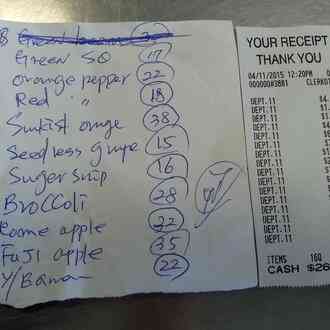 Green SQ 17
orange pepper 22
Red " " 18
Sunkist orange 38
Seedless grape 15
Suger snip 16
BroccoLi 28
Rome apple 22
FuJi apple 35
Y/Banan 22
YOUR RECEIPT
THANK YOU
04/11/2015 12:20PM 0
000000#3881 CLERK0
DEPT.11 $4.
DEPT.11
DEPT.11
DEPT.11
DEPT.11
DEPT.11
DEPT.11
DEPT.11
DEPT.11
DEPT.11
DEPT.11
DEPT.11
DEPT.11
ITEMS 16Q
CASH $26